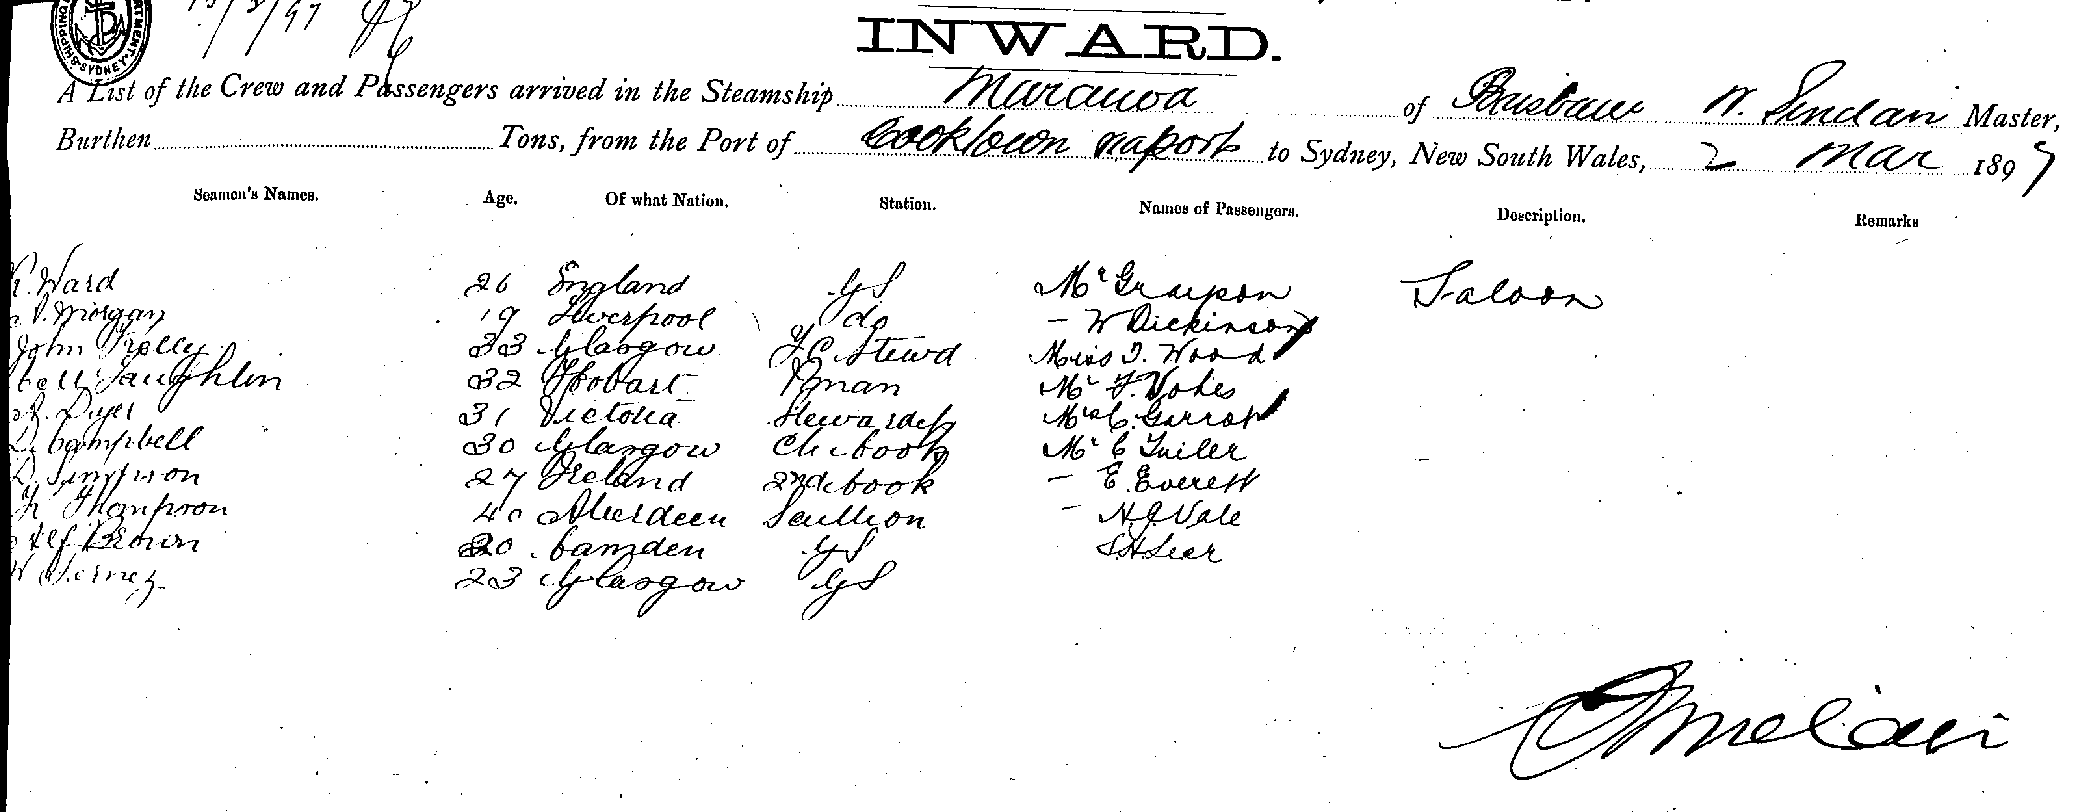 SHIPPING DEPARTMENT SYDNEY
INWARD.
A List of the Crew and Passengers arrived in the Steamship Maranoa of Brisbane W. Sinclair Master,
Burthen Tons, from the Port of Cooktown via ports to Sydney, New South Wales, 2 Mar 1897
Seamen's Names. Age. Of what Nation. Station. Names of Passengers. Description. Remarks
R. Ward 26 England GS Mr Saloon
Morgan 19 Liverpool do - W Dickinson
John Kelly 33 Glasgow Stewd Miss I. Wood
Laughlin 32 Hobart Pman Mr F. Vokes
R. Dyer 31 Victoria Stewardess Mrs C. Garrott
D. Campbell 30 Glasgow Ch. Cook Mr C
D. Simpson 27 Ireland 2nd Cook - E. Everett
Thompson 40 Aberdeen Scullion - Vale
Alf Brown 20 Camden GS
W 23 Glasgow GS